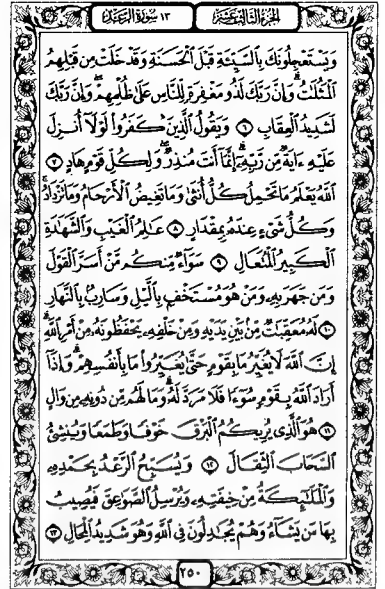 الجزء الثالث عشر
١٣ سورة الرعد
وَيَسْتَعْجِلُونَكَ بِالسَّيِّئَةِ قَبْلَ الْحَسَنَةِ وَقَدْ خَلَتْ مِن قَبْلِهِمُ
الْمَثُلَٰتُ ۗ وَإِنَّ رَبَّكَ لَذُو مَغْفِرَةٍ لِّلنَّاسِ عَلَىٰ ظُلْمِهِمْ ۖ وَإِنَّ رَبَّكَ
لَشَدِيدُ الْعِقَابِ ٦ وَيَقُولُ الَّذِينَ كَفَرُوا لَوْلَا أُنزِلَ
عَلَيْهِ ءَايَةٌ مِّن رَّبِّهِ ۗ إِنَّمَا أَنتَ مُنذِرٌ ۖ وَلِكُلِّ قَوْمٍ هَادٍ ٧
اللَّهُ يَعْلَمُ مَا تَحْمِلُ كُلُّ أُنثَىٰ وَمَا تَغِيضُ الْأَرْحَامُ وَمَا تَزْدَادُ ۖ
وَكُلُّ شَيْءٍ عِندَهُ بِمِقْدَارٍ ٨ عَٰلِمُ الْغَيْبِ وَالشَّهَٰدَةِ
الْكَبِيرُ الْمُتَعَالِ ٩ سَوَاءٌ مِّنكُم مَّنْ أَسَرَّ الْقَوْلَ
وَمَن جَهَرَ بِهِ وَمَنْ هُوَ مُسْتَخْفٍ بِاللَّيْلِ وَسَارِبٌ بِالنَّهَارِ
١٠ لَهُ مُعَقِّبَٰتٌ مِّن بَيْنِ يَدَيْهِ وَمِنْ خَلْفِهِ يَحْفَظُونَهُ مِنْ أَمْرِ اللَّهِ ۗ
إِنَّ اللَّهَ لَا يُغَيِّرُ مَا بِقَوْمٍ حَتَّىٰ يُغَيِّرُوا مَا بِأَنفُسِهِمْ ۗ وَإِذَا
أَرَادَ اللَّهُ بِقَوْمٍ سُوءًا فَلَا مَرَدَّ لَهُ ۚ وَمَا لَهُم مِّن دُونِهِ مِن وَالٍ
١١ هُوَ الَّذِي يُرِيكُمُ الْبَرْقَ خَوْفًا وَطَمَعًا وَيُنشِئُ
السَّحَابَ الثِّقَالَ ١٢ وَيُسَبِّحُ الرَّعْدُ بِحَمْدِهِ
وَالْمَلَٰئِكَةُ مِنْ خِيفَتِهِ وَيُرْسِلُ الصَّوَٰعِقَ فَيُصِيبُ
بِهَا مَن يَشَاءُ وَهُمْ يُجَٰدِلُونَ فِي اللَّهِ وَهُوَ شَدِيدُ الْمِحَالِ ١٣
٢٥٠